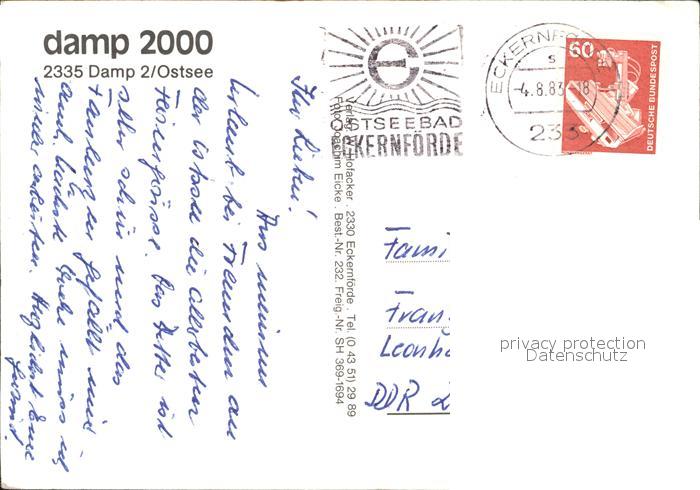 damp 2000
2335 Damp 2/Ostsee
OSTSEEBAD
ECKERNFÖRDE
ECKERNFÖ
-4.8.83-18
233
60
DEUTSCHE BUNDESPOST
Ihr Lieben!
Aus meinem
Urlaub bei Freunden an
der Ostsee die allerbesten
Feriengrüße. Das Wetter ist
sehr schön und das
gefällt mir
Woche muss ich
wieder arbeiten. Herzlichst Eure
Verlag W. Hofacker . 2330 Eckernförde . Tel. (0 43 51) 29 89
Foto: Joachim Eicke . Best.-Nr. 232. Freig.-Nr. SH 369-1694
Fami
Fran
Leonh
DDR
privacy protection
Datenschutz